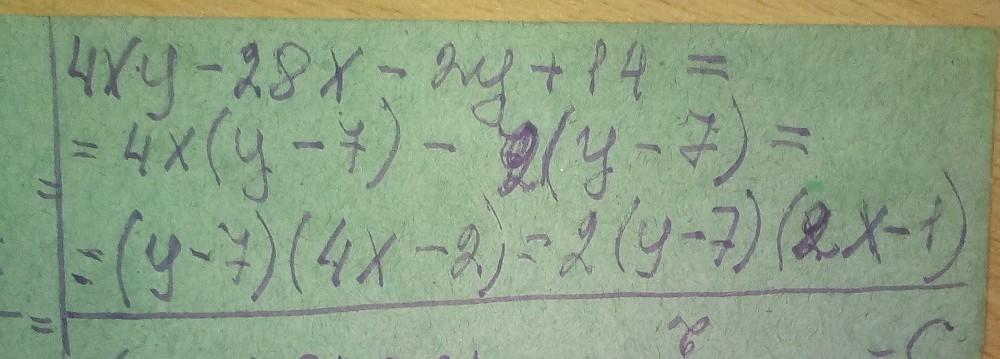 4xy - 28x - 2y + 14 =
= 4x(y - 7) - 2(y - 7) =
= (y - 7)(4x - 2) = 2(y - 7)(2x - 1)
=
=